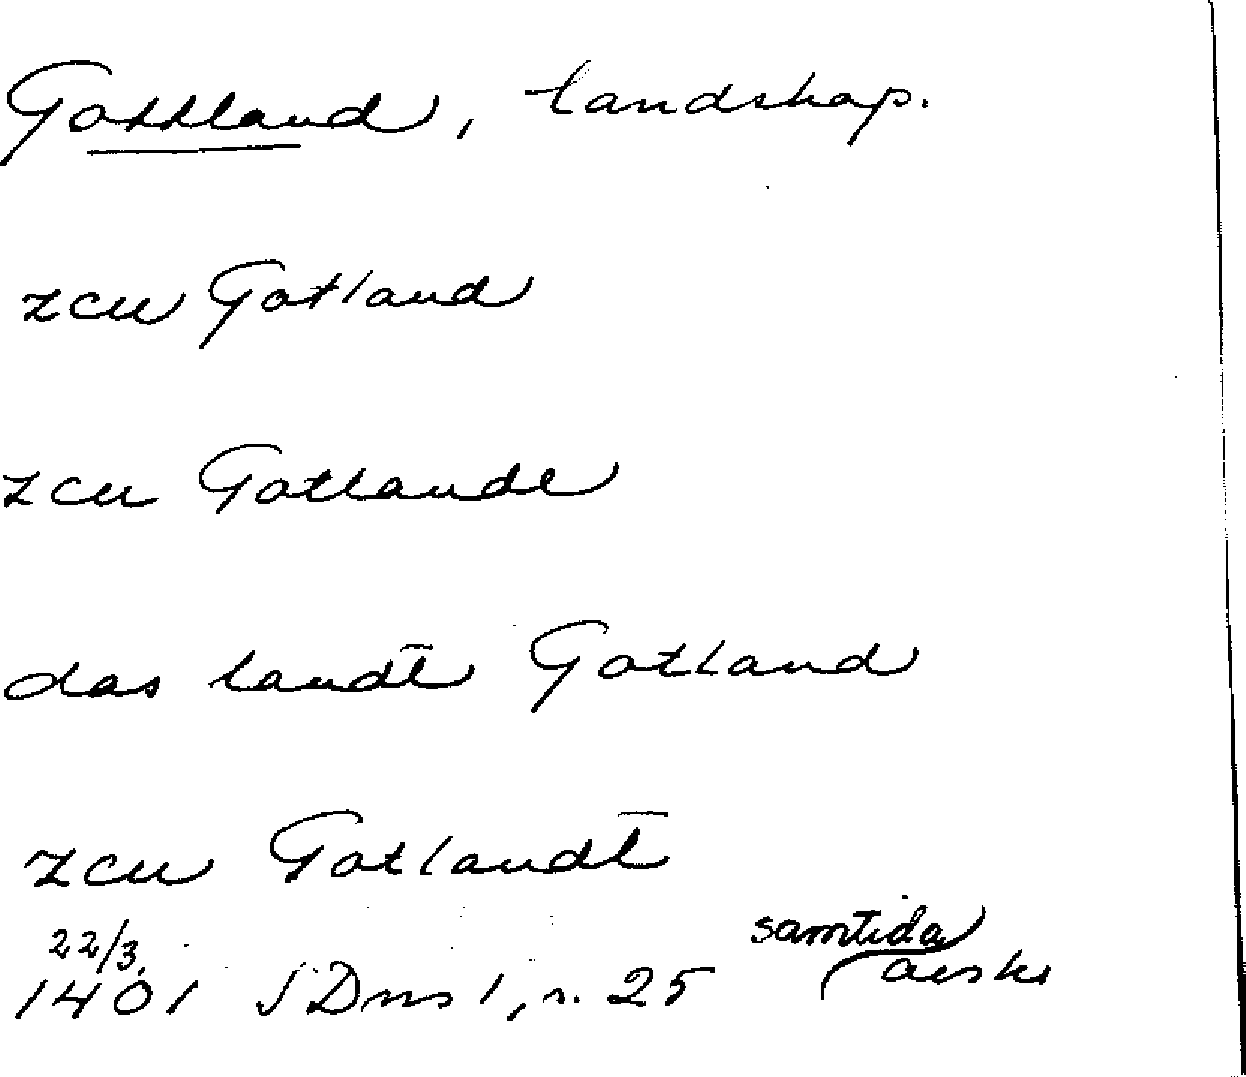 Gottland, landskap.
zcu Gotland
zcu Gotlande
das landt Gotland
zcu Gotlandt
22/3
1401 SDns 1, s. 25 samtida avskr